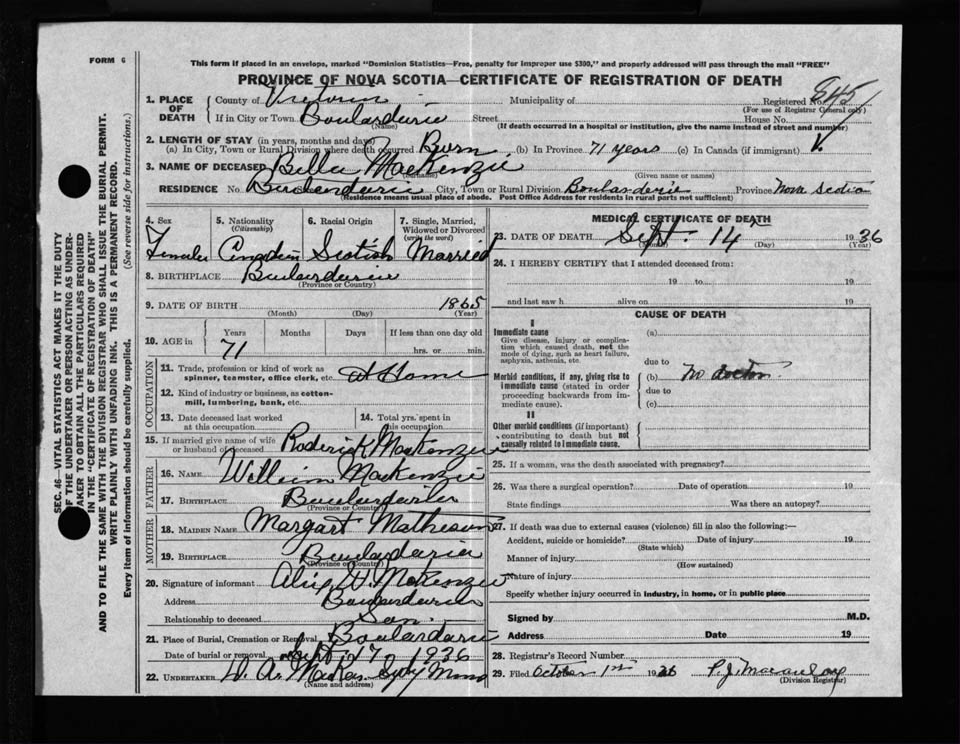 FORM 6
This form if placed in an envelope, marked "Dominion Statistics—Free, penalty for improper use $300," and properly addressed will pass through the mail "FREE"
PROVINCE OF NOVA SCOTIA—CERTIFICATE OF REGISTRATION OF DEATH
SEC. 46—VITAL STATISTICS ACT MAKES IT THE DUTY
OF THE UNDERTAKER OR PERSON ACTING AS UNDER-
TAKER TO OBTAIN ALL THE PARTICULARS REQUIRED
IN THE "CERTIFICATE OF REGISTRATION OF DEATH"
AND TO FILE THE SAME WITH THE DIVISION REGISTRAR WHO SHALL ISSUE THE BURIAL PERMIT.
WRITE PLAINLY WITH UNFADING INK. THIS IS A PERMANENT RECORD.
Every item of information should be carefully supplied. (See reverse side for instructions.)
1. PLACE OF DEATH County of Victoria Municipality of Registered No. 845
(For use of Registrar General only)
If in City or Town Boularderie Street House No.
(Name) (If death occurred in a hospital or institution, give the name instead of street and number)
2. LENGTH OF STAY (in years, months and days)
(a) In City, Town or Rural Division where death occurred Born (b) In Province 71 years (c) In Canada (if immigrant)
3. NAME OF DECEASED Bella MacKenzie
(Surname) (Given name or names)
RESIDENCE No. Boularderie City, Town or Rural Division Boularderie Province Nova Scotia
(Residence means usual place of abode. Post Office Address for residents in rural parts not sufficient)
4. Sex 5. Nationality (Citizenship) 6. Racial Origin 7. Single, Married, Widowed or Divorced (write the word)
Female Canadian Scotish Married
8. BIRTHPLACE Boularderie
(Province or Country)
9. DATE OF BIRTH 1865
(Month) (Day) (Year)
10. AGE in Years Months Days If less than one day old
71 hrs. or min.
OCCUPATION
11. Trade, profession or kind of work as spinner, teamster, office clerk, etc. At Home
12. Kind of industry or business, as cotton-mill, lumbering, bank, etc.
13. Date deceased last worked at this occupation 14. Total yrs. spent in this occupation
15. If married give name of wife or husband of deceased Roderick MacKenzie
FATHER
16. NAME William MacKenzie
17. BIRTHPLACE Boularderie
(Province or Country)
MOTHER
18. MAIDEN NAME Margart Matheson
19. BIRTHPLACE Boularderie
(Province or Country)
20. Signature of informant W. McKenzie
Address Boularderie
Relationship to deceased Son
21. Place of Burial, Cremation or Removal Boularderie
Date of burial or removal Sept 17 1936
22. UNDERTAKER W. A. Sydy Mines
(Name and address)
MEDICAL CERTIFICATE OF DEATH
23. DATE OF DEATH Sept. 14 1936
(Month) (Day) (Year)
24. I HEREBY CERTIFY that I attended deceased from:
19 to 19
and last saw h alive on 19
CAUSE OF DEATH
I
Immediate cause (a)
Give disease, injury or complication which caused death, not the mode of dying, such as heart failure, asphyxia, asthenia, etc.
due to
Morbid conditions, if any, giving rise to immediate cause (stated in order proceeding backwards from immediate cause). (b) no doctor
due to
(c)
II
Other morbid conditions (if important) contributing to death but not causally related to immediate cause.
25. If a woman, was the death associated with pregnancy?
26. Was there a surgical operation? Date of operation 19
State findings Was there an autopsy?
27. If death was due to external causes (violence) fill in also the following:—
Accident, suicide or homicide? Date of injury 19
(State which)
Manner of injury
(How sustained)
Nature of injury
Specify whether injury occurred in industry, in home, or in public place
Signed by M.D.
Address Date 19
28. Registrar's Record Number
29. Filed October 1st 1936 P. J. Macaulay
(Division Registrar)